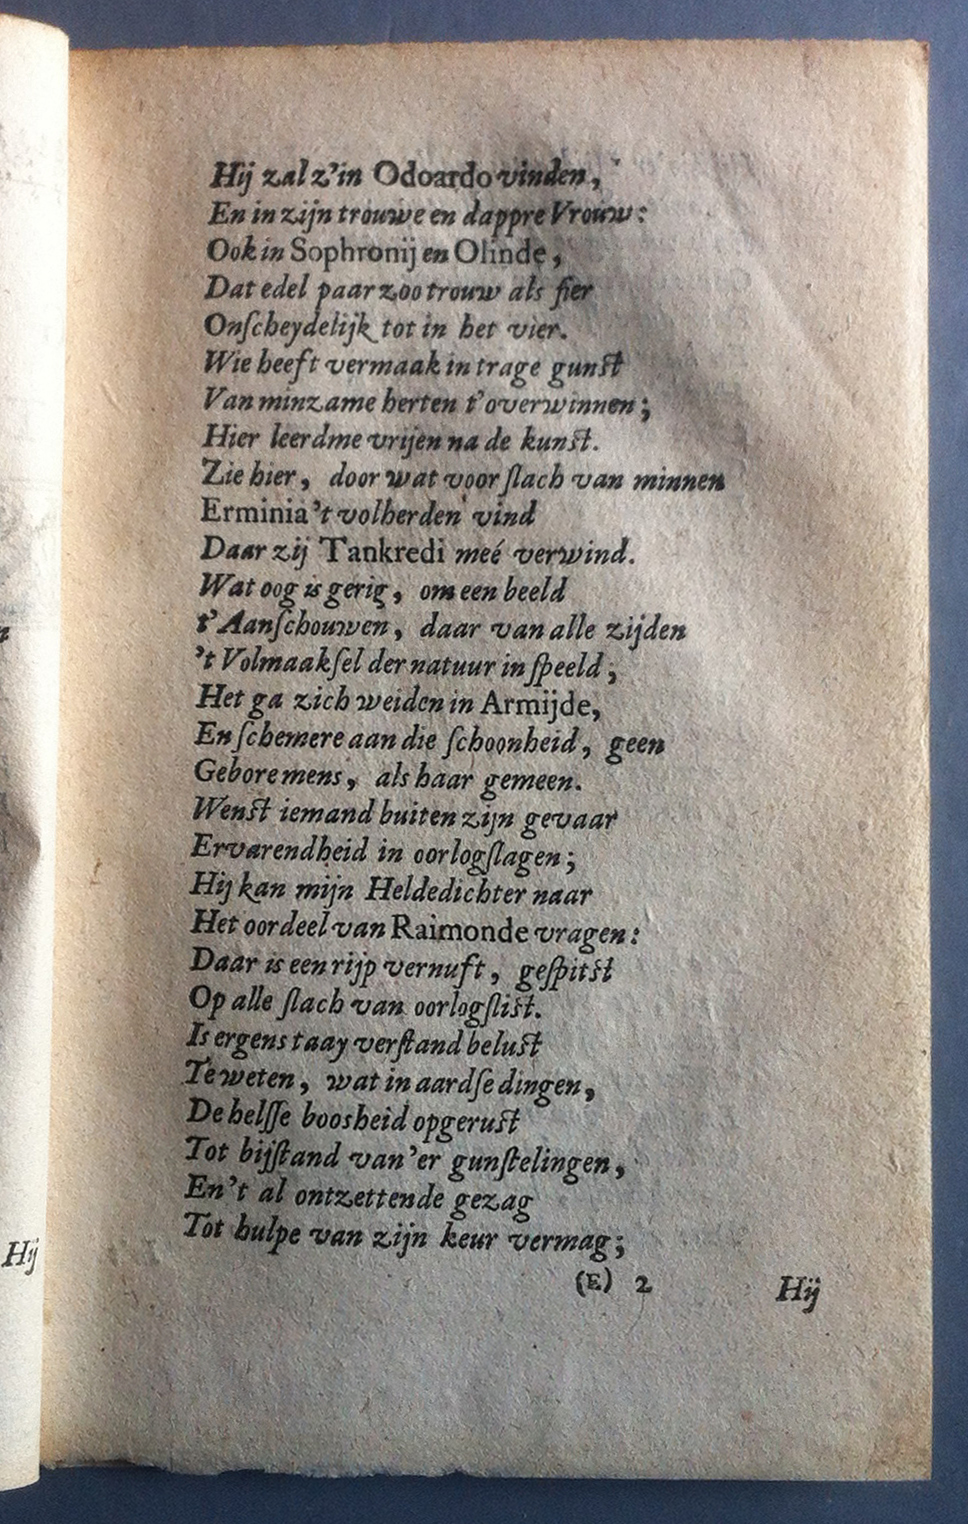 Hij zal z'in Odoardo vinden,
En in zijn trouwe en dappre Vrouw:
Ook in Sophronij en Olinde,
Dat edel paar zoo trouw als fier
Onſcheydelijk tot in het vier.
Wie heeft vermaak in trage gunſt
Van minzame herten t'overwinnen;
Hier leerdme vrijen na de kunſt.
Zie hier, door wat voor ſlach van minnen
Erminia 't volherden vind
Daar zij Tankredi meé verwind.
Wat oog is gerig, om een beeld
t'Aanſchouwen, daar van alle zijden
't Volmaakſel der natuur in ſpeeld;
Het ga zich weiden in Armijde,
En ſchemere aan die ſchoonheid, geen
Gebore mens, als haar gemeen.
Wenſt iemand buiten zijn gevaar
Ervarendheid in oorlogſlagen;
Hij kan mijn Heldedichter naar
Het oordeel van Raimonde vragen:
Daar is een rijp vernuft, geſpitſt
Op alle ſlach van oorlogſliſt.
Is ergens taay verſtand beluſt
Te weten, wat in aardſe dingen,
De helſſe boosheid opgeruſt
Tot bijſtand van 'er gunſtelingen,
En 't al ontzettende gezag
Tot hulpe van zijn keur vermag;
(E) 2 Hij
Hij